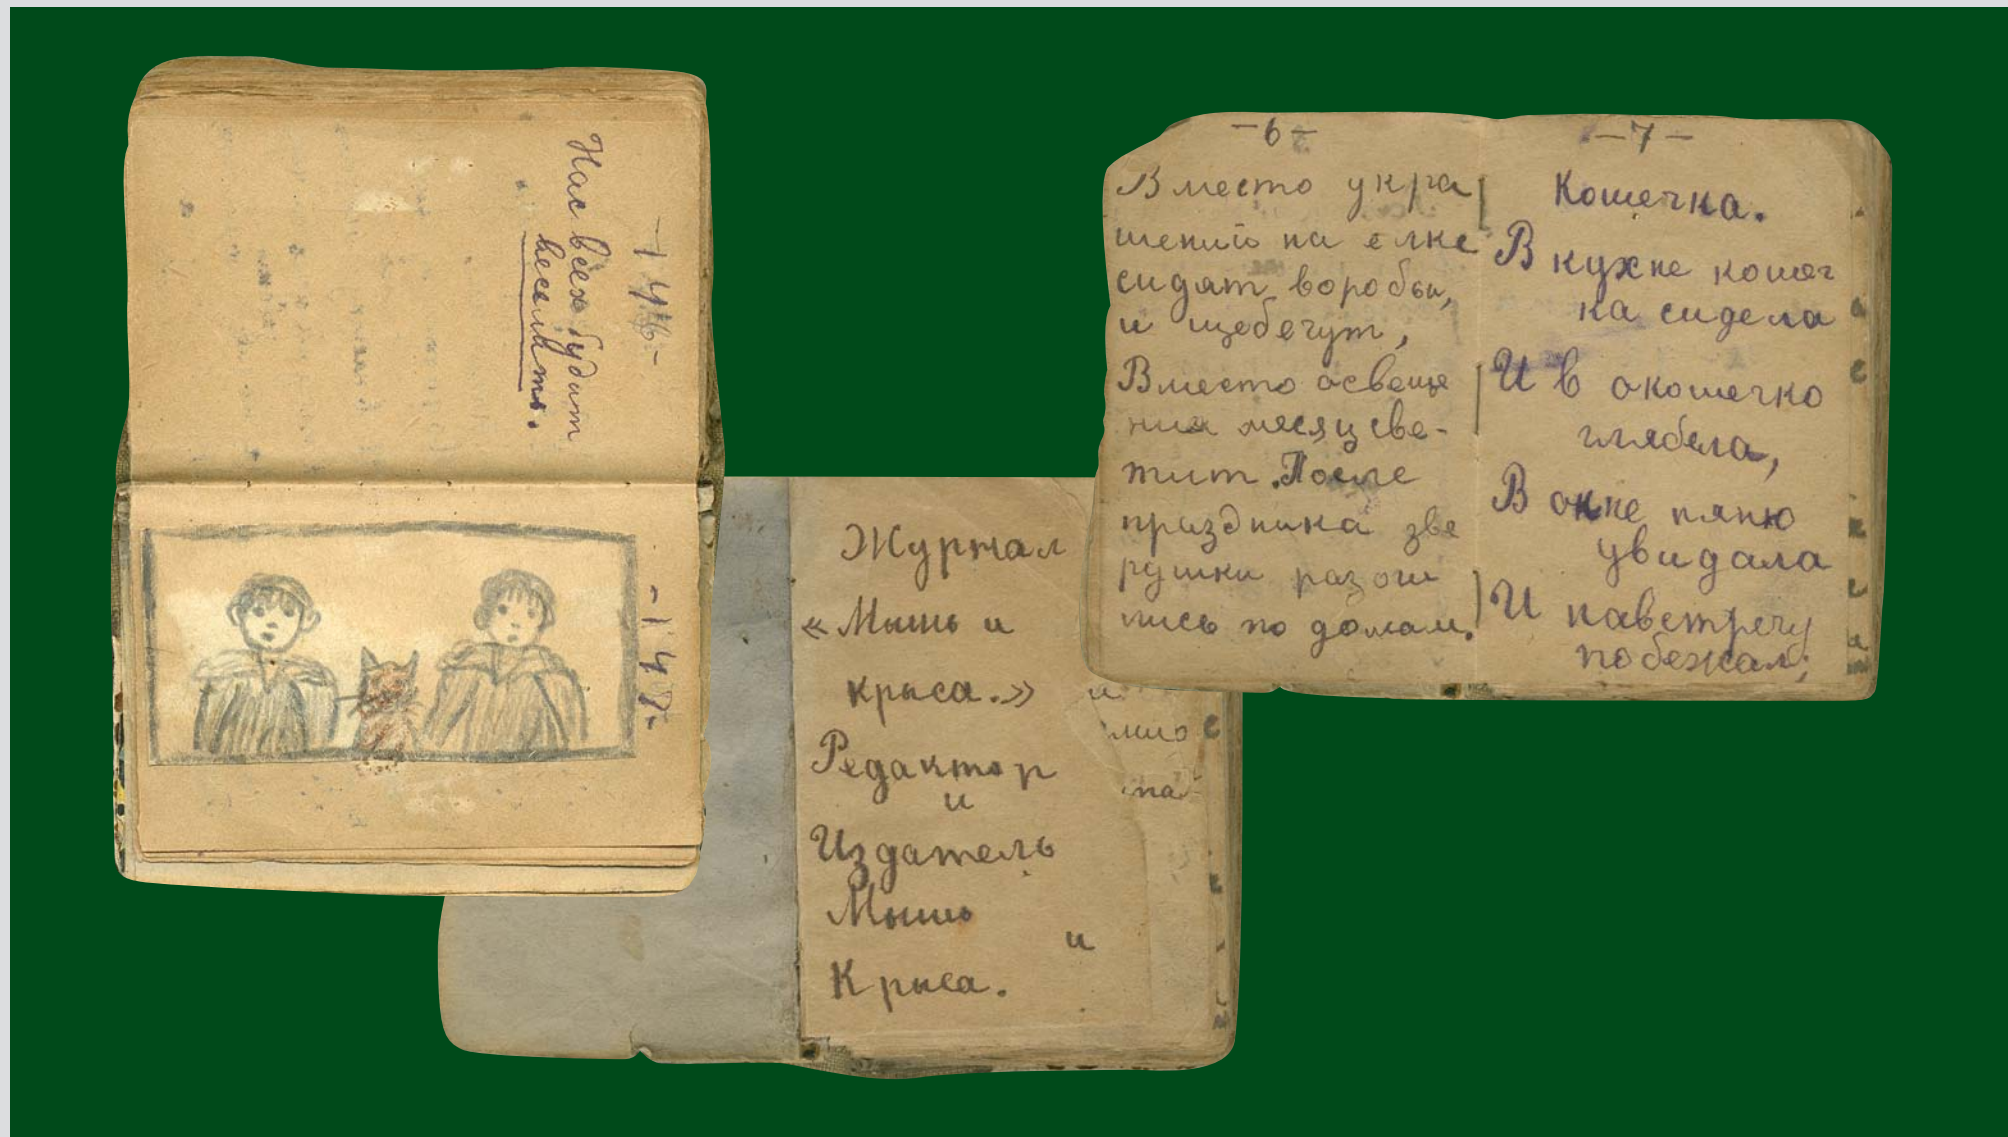 Нас всех будит
веселить.
Журнал
«Мышь и
крыса.»
Редактор
и
Издатель
Мышь
и
Крыса.
-6-
Вместо укра
шений на елке
сидят воробьи,
и щебечут,
Вместо освеще
ния месяц све-
тит. После
праздника зве
рушки разош
лись по домам.
-7-
Кошечка.
В кухне кошеч
ка сидела
И в окошечко
глядела,
В окне няню
увидала
И навстречу
побежал;